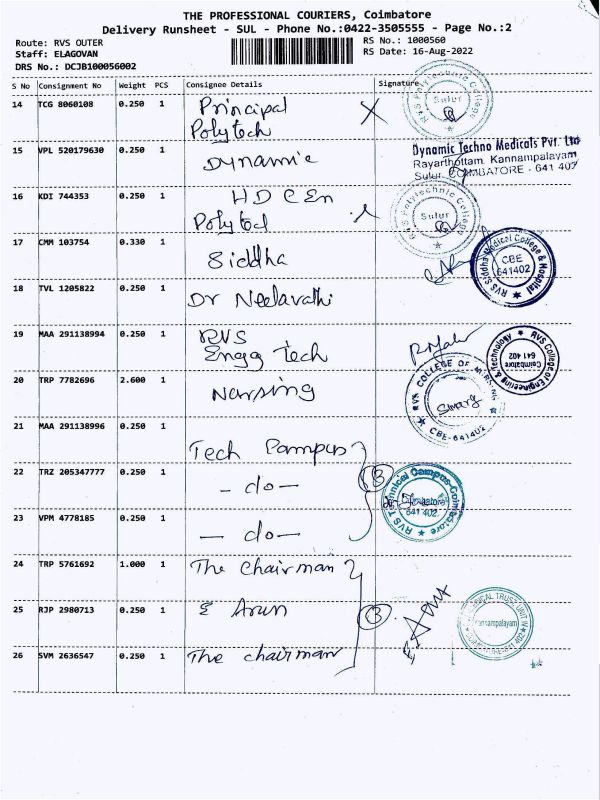 THE PROFESSIONAL COURIERS, Coimbatore
Delivery Runsheet - SUL - Phone No.:0422-3505555 - Page No.:2
Route: RVS OUTER
RS No.: 1000560
Staff: ELAGOVAN
RS Date: 16-Aug-2022
DRS No.: DCJB100056002
S No Consignment No Weight PCS Consignee Details Signature
14 TCG 8060108 0.250 1 Principal Polytech
RVS Polytechnic College Sulur
15 VPL 520179630 0.250 1 Dynamic
Dynamic Techno Medicals Pvt. Ltd
Rayarthottam, Kannampalayam
Sulur, COIMBATORE - 641 402
16 KDI 744353 0.250 1
RVS Polytechnic College Sulur
17 CMM 103754 0.330 1 Siddha
RVS Siddha Medical College & Hospital CBE 641402
18 TVL 1205822 0.250 1 Dr Neelavathi
19 MAA 291138994 0.250 1 RVS Engg Tech
RVS College of Engineering & Technology Coimbatore 641 402
20 TRP 7782696 2.600 1 Nursing
RVS COLLEGE OF NURSING CBE-641402
21 MAA 291138996 0.250 1 Tech Campus
22 TRZ 205347777 0.250 1 - do -
3
RVS Technical Campus-Coimbatore Coimbatore 641 402.
23 VPM 4778185 0.250 1 - do -
24 TRP 5761692 1.000 1 The Chairman
25 RJP 2980713 0.250 1 E Arun
3
26 SVM 2636547 0.250 1 The chairman